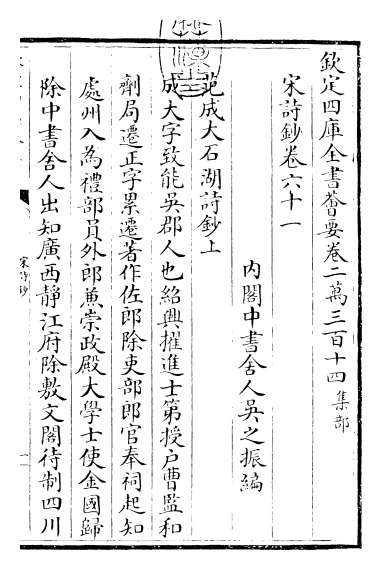 欽定四庫全書薈要卷二萬三百十四 集部
宋詩鈔卷六十一
内閣中書舍人吳之振編
范成大石湖詩鈔上
成大字致能吳郡人也紹興擢進士第授户曹監和
劑局遷正字累遷著作佐郎除吏部郎官奉祠起知
處州入為禮部員外郎兼崇政殿大學士使金國歸
除中書舍人出知廣西靜江府除敷文閣待制四川
宋詩鈔